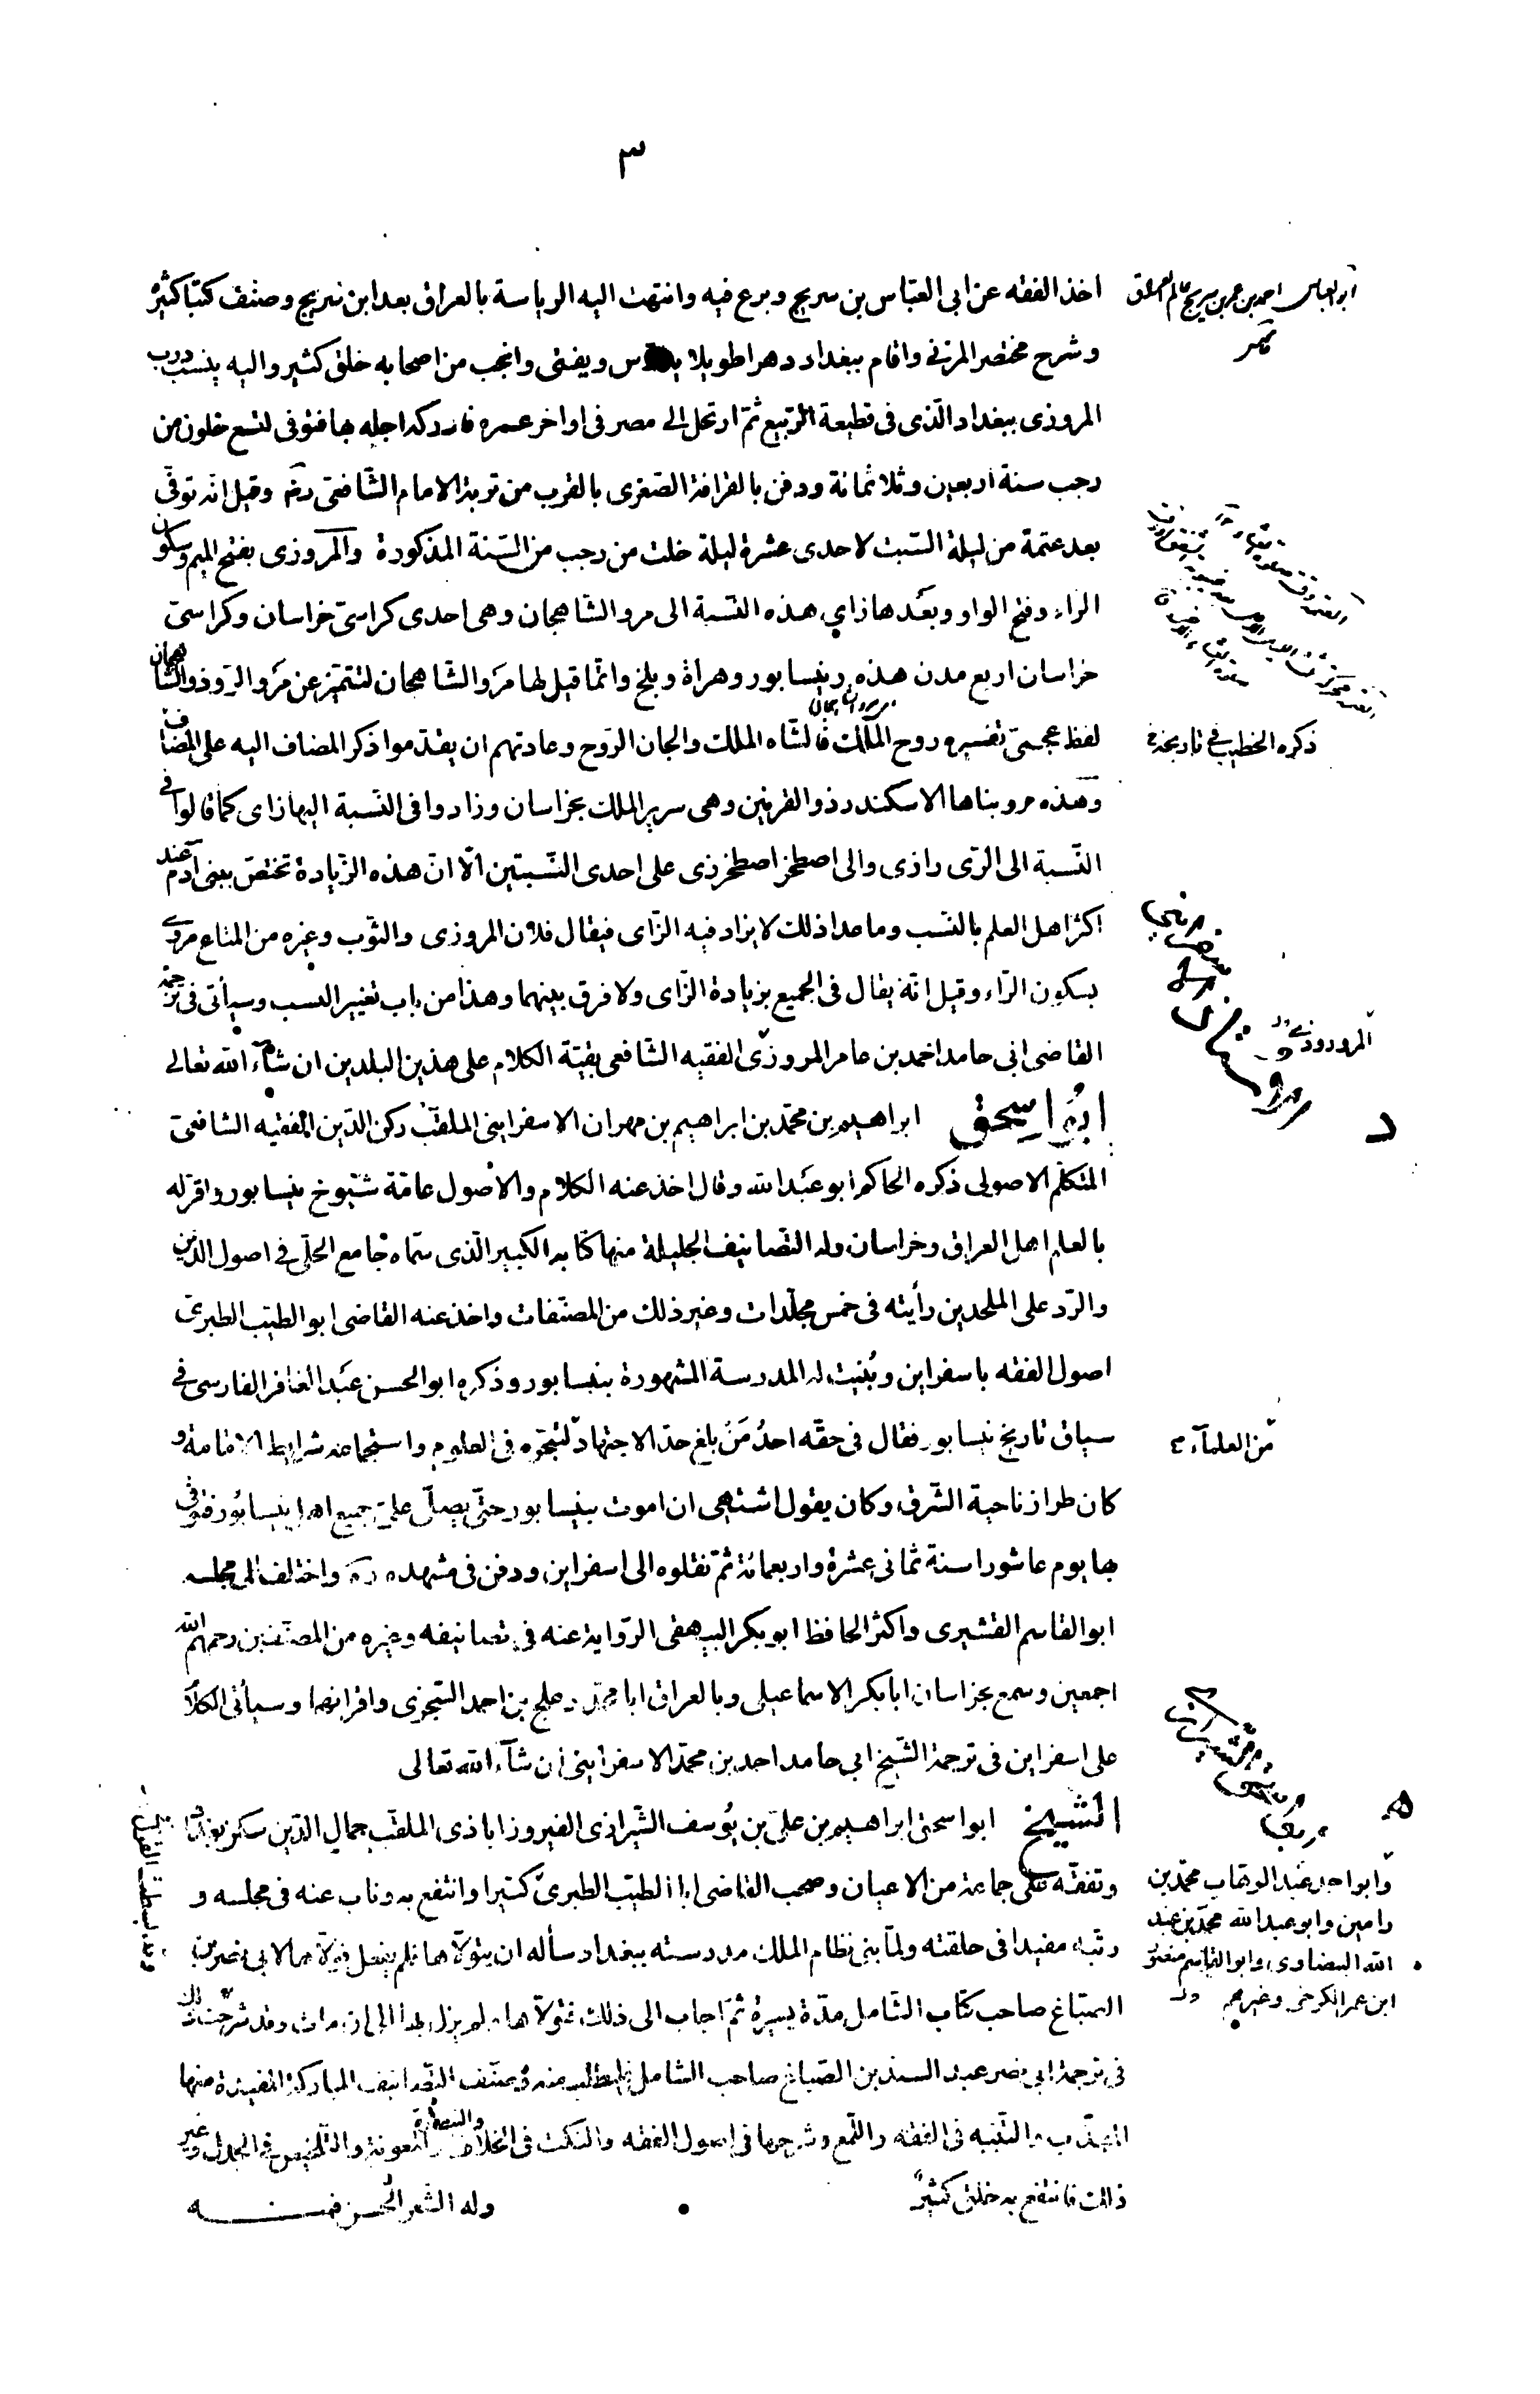 ٣
اخذ الفقه عن ابى العبّاس بن سريج وبرع فيه وانتهت اليه الرياسة بالعراق بعد ابن سريج وصنّف كتبا كثيرة
وشرح مختصر المزنى واقام ببغداد دهرا طويلا يدرس ويفتى وانجب من اصحابه خلق كثير واليه ينسب درب
المروزى ببغداد الّذى فى قطيعة الرّبيع ثمّ ارتحل الى مصر فى اواخر عمره فادركه اجله بها فتوفى لتسع خلون من
رجب سنة اربعين وثلاثمائة ودفن بالقرافة الصّغرى بالقرب من تربة الامام الشّافعىّ رحمه وقيل انّه توفّى
بعد عتمة من ليلة السّبت لاحدى عشرة ليلة خلت من رجب من السّنة المذكورة والمروزى بفتح الميم وسكون
الرّاء وفتح الواو وبعدها زاى هذه النّسبة الى مرو الشّاهجان وهى احدى كراسىّ خراسان وكراسىّ
خراسان اربع مدن هذه ونيسابور وهراة وبلخ وانّما قيل لها مرو الشّاهجان لتتميّز عن مرو الرّوذ والشّاهجان
لفظ عجمىّ تفسيره روح الملك فالشّاه الملك والجان الرّوح وعادتهم ان يقدّموا ذكر المضاف اليه على المضاف
وهذه مرو بناها الاسكندر ذو القرنين وهى سرير الملك بخراسان وزادوا فى النّسبة اليها زاى كما قالوا فى
النّسبة الى الرّى رازى والى اصطخر اصطخرزى على احدى النّسبتين الّا انّ هذه الزّيادة تختصّ ببنى آدم عند
اكثر اهل العلم بالنّسب وما عدا ذلك لا يزاد فيه الزّاى فيقال فلان المروزى والثّوب وغيره من المتاع مروى
بسكون الرّاء وقيل انّه يقال فى الجميع بزيادة الزّاى ولا فرق بينهما وهذا من باب تغيير النسب وسيأتى فى ترجمة
القاضى ابى حامد احمد بن عامر المروزىّ الفقيه الشّافعى بقيّة الكلام على هذين البلدين ان شآء الله تعالى
ابُو اسحق ابراهيم بن محمّد بن ابراهيم بن مهران الاسفراينى الملقّب ركن الدّين الفقيه الشافعىّ
المتكلّم الاصولى ذكره الحاكم ابو عبد الله وقال اخذ عنه الكلام والاصول عامّة شيوخ نيسابور واقرّ له
بالعلم اهل العراق وخراسان وله التّصانيف الجليلة منها كتابه الكبير الّذى سمّاه جامع الحلى فى اصول الدّين
والرّد على الملحدين رأيته فى خمس مجلّدات وغير ذلك من المصنّفات واخذ عنه القاضى ابو الطيّب الطبرىّ
اصول الفقه باسفراين وبُنيت له المدرسة المشهورة بنيسابور وذكره ابو الحسن عبد الغافر الفارسى فى
سياق تاريخ نيسابور فقال فى حقّه احدُ مَنْ بلغ حدّ الاجتهاد لتبحّره فى العلوم واستجماعه شرايط الامامة و
كان طراز ناحية الشّرق وكان يقول اشتهى ان اموت بنيسابور حتّى يصلّى علىّ جميع اهل نيسابور فتوفّى
بها يوم عاشورا سنة ثمانى عشرة واربعمائة ثمّ نقلوه الى اسفراين ودفن فى مشهده واختلف الى مجلسه
ابو القاسم القشيرى واكثر الحافظ ابو بكر البيهقى الرّواية عنه فى تصانيفه وغيره من المصنّفين رحمهم الله
اجمعين وسمع بخراسان ابا بكر الاسماعيلى وبالعراق ابا محمّد دعلج بن احمد السّجزى واقرانهما وسيأتى الكلام
على اسفراين فى ترجمة الشّيخ ابى حامد احمد بن محمّد الاسفراينى ان شآء الله تعالى
الشّيخ ابو اسحق ابراهيم بن علىّ بن يُوسف الشّيرازى الفيروزاباذى الملقّب جمال الدّين سكن بغداد
وتفقّه على جماعة من الاعيان وصحب القاضى ابا الطيّب الطبرىّ كثيرا وانتفع به وناب عنه فى مجلسه و
رتّبه مفيدا فى حلقته ولمّا بنى نظام الملك مدرسته ببغداد سأله ان يتولّاها فلم يفعل فولّاها لابى نصر بن
الصبّاغ صاحب كتاب الشّامل مدّة يسيرة ثمّ اجاب الى ذلك فتولّاها ولم يزل بها الى ان مات وقد شرحت ذلك
فى ترجمة ابى نصر عبد السيّد بن الصّباغ صاحب الشامل فليطلب منه وصنّف التّصانيف المباركة المفيدة منها
المهذّب والتّنبيه فى الفقه واللّمع وشرحها فى اصول الفقه والنكت فى الخلاف والتبصرة والمعونة والتّلخيص فى الجدل وغير
ذلك فانتفع به خلق كثيرٌ وله الشّعر الحسن فمنه
ابو العباس احمد بن عمر بن سريج عالم العراق
ذكره الخطيب فى تاريخه
المروروذى
د
من العلمآء
ه
وابو احمد عبد الوهّاب محمّد بن
رامين وابو عبد الله محمّد بن عبد
الله البيضاوى وابو القاسم منصور
ابن عمر الكرخى وغيرهم